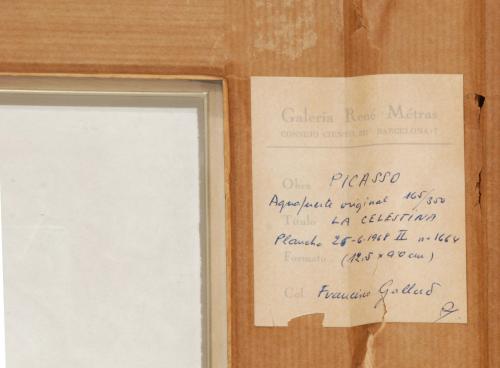 Galeria René Métras
CONSEJO CIENTO, 331 BARCELONA-7
Obra PICASSO
Aguafuerte original 165/350
Título LA CELESTINA
Plancha 25-6-1968 II n-1664
Formato (12,5 x 9'0 cm)
Col. Francisco